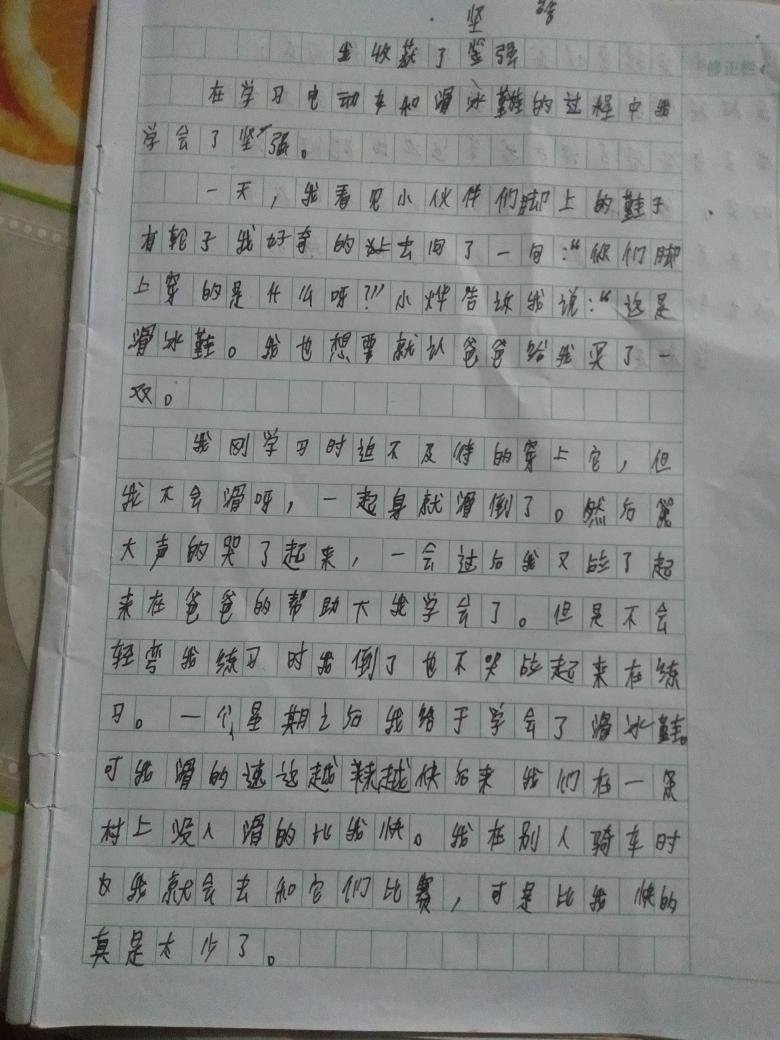 坚
我收获了坚强
在学习电动车和滑冰鞋的过程中我
学会了坚强。
一天，我看见小伙伴们脚上的鞋子
有轮子我好奇的上去问了一问：“你们脚
上穿的是什么呀？”小烨告诉我说：“这是
滑冰鞋。我也想要就让爸爸给我买了一
双。
我刚学习时迫不及待的穿上它，但
我不会滑呀，一起身就滑倒了。然后我
大声的哭了起来，一会过后我又站了起
来在爸爸的帮助下我学会了。但是不会
轻弯我练习时我倒了也不哭站起来在练
习。一个星期之后我给于学会了滑冰鞋。
可我滑的速达越来越快后来我们在一条
村上没人滑的比我快。我在别人骑车时
我就会去和它们比赛，可是比我快的
真是太少了。